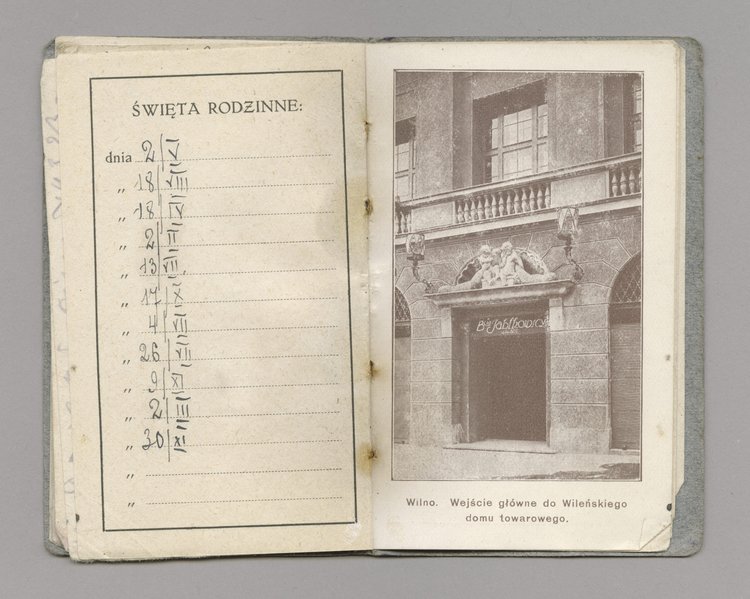 ŚWIĘTA RODZINNE:
dnia 2/VI
„ 18/VIII
„ 18/IV
„ 2/II
„ 13/VII
„ 17/X
„ 4/VII
„ 26/VII
„ 9/XI
„ 2/III
„ 30/XI
„
„
Bcia Jabłkowscy
Wilno. Wejście główne do Wileńskiego
domu towarowego.